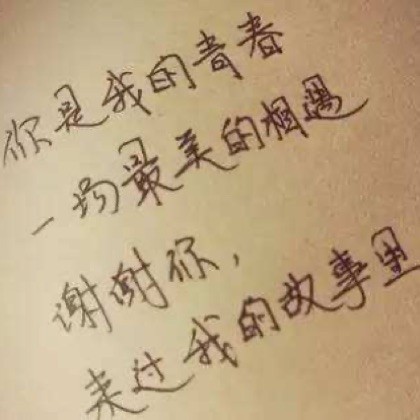 你是我的青春
一场最美的相遇
谢谢你，
来过我的故事里